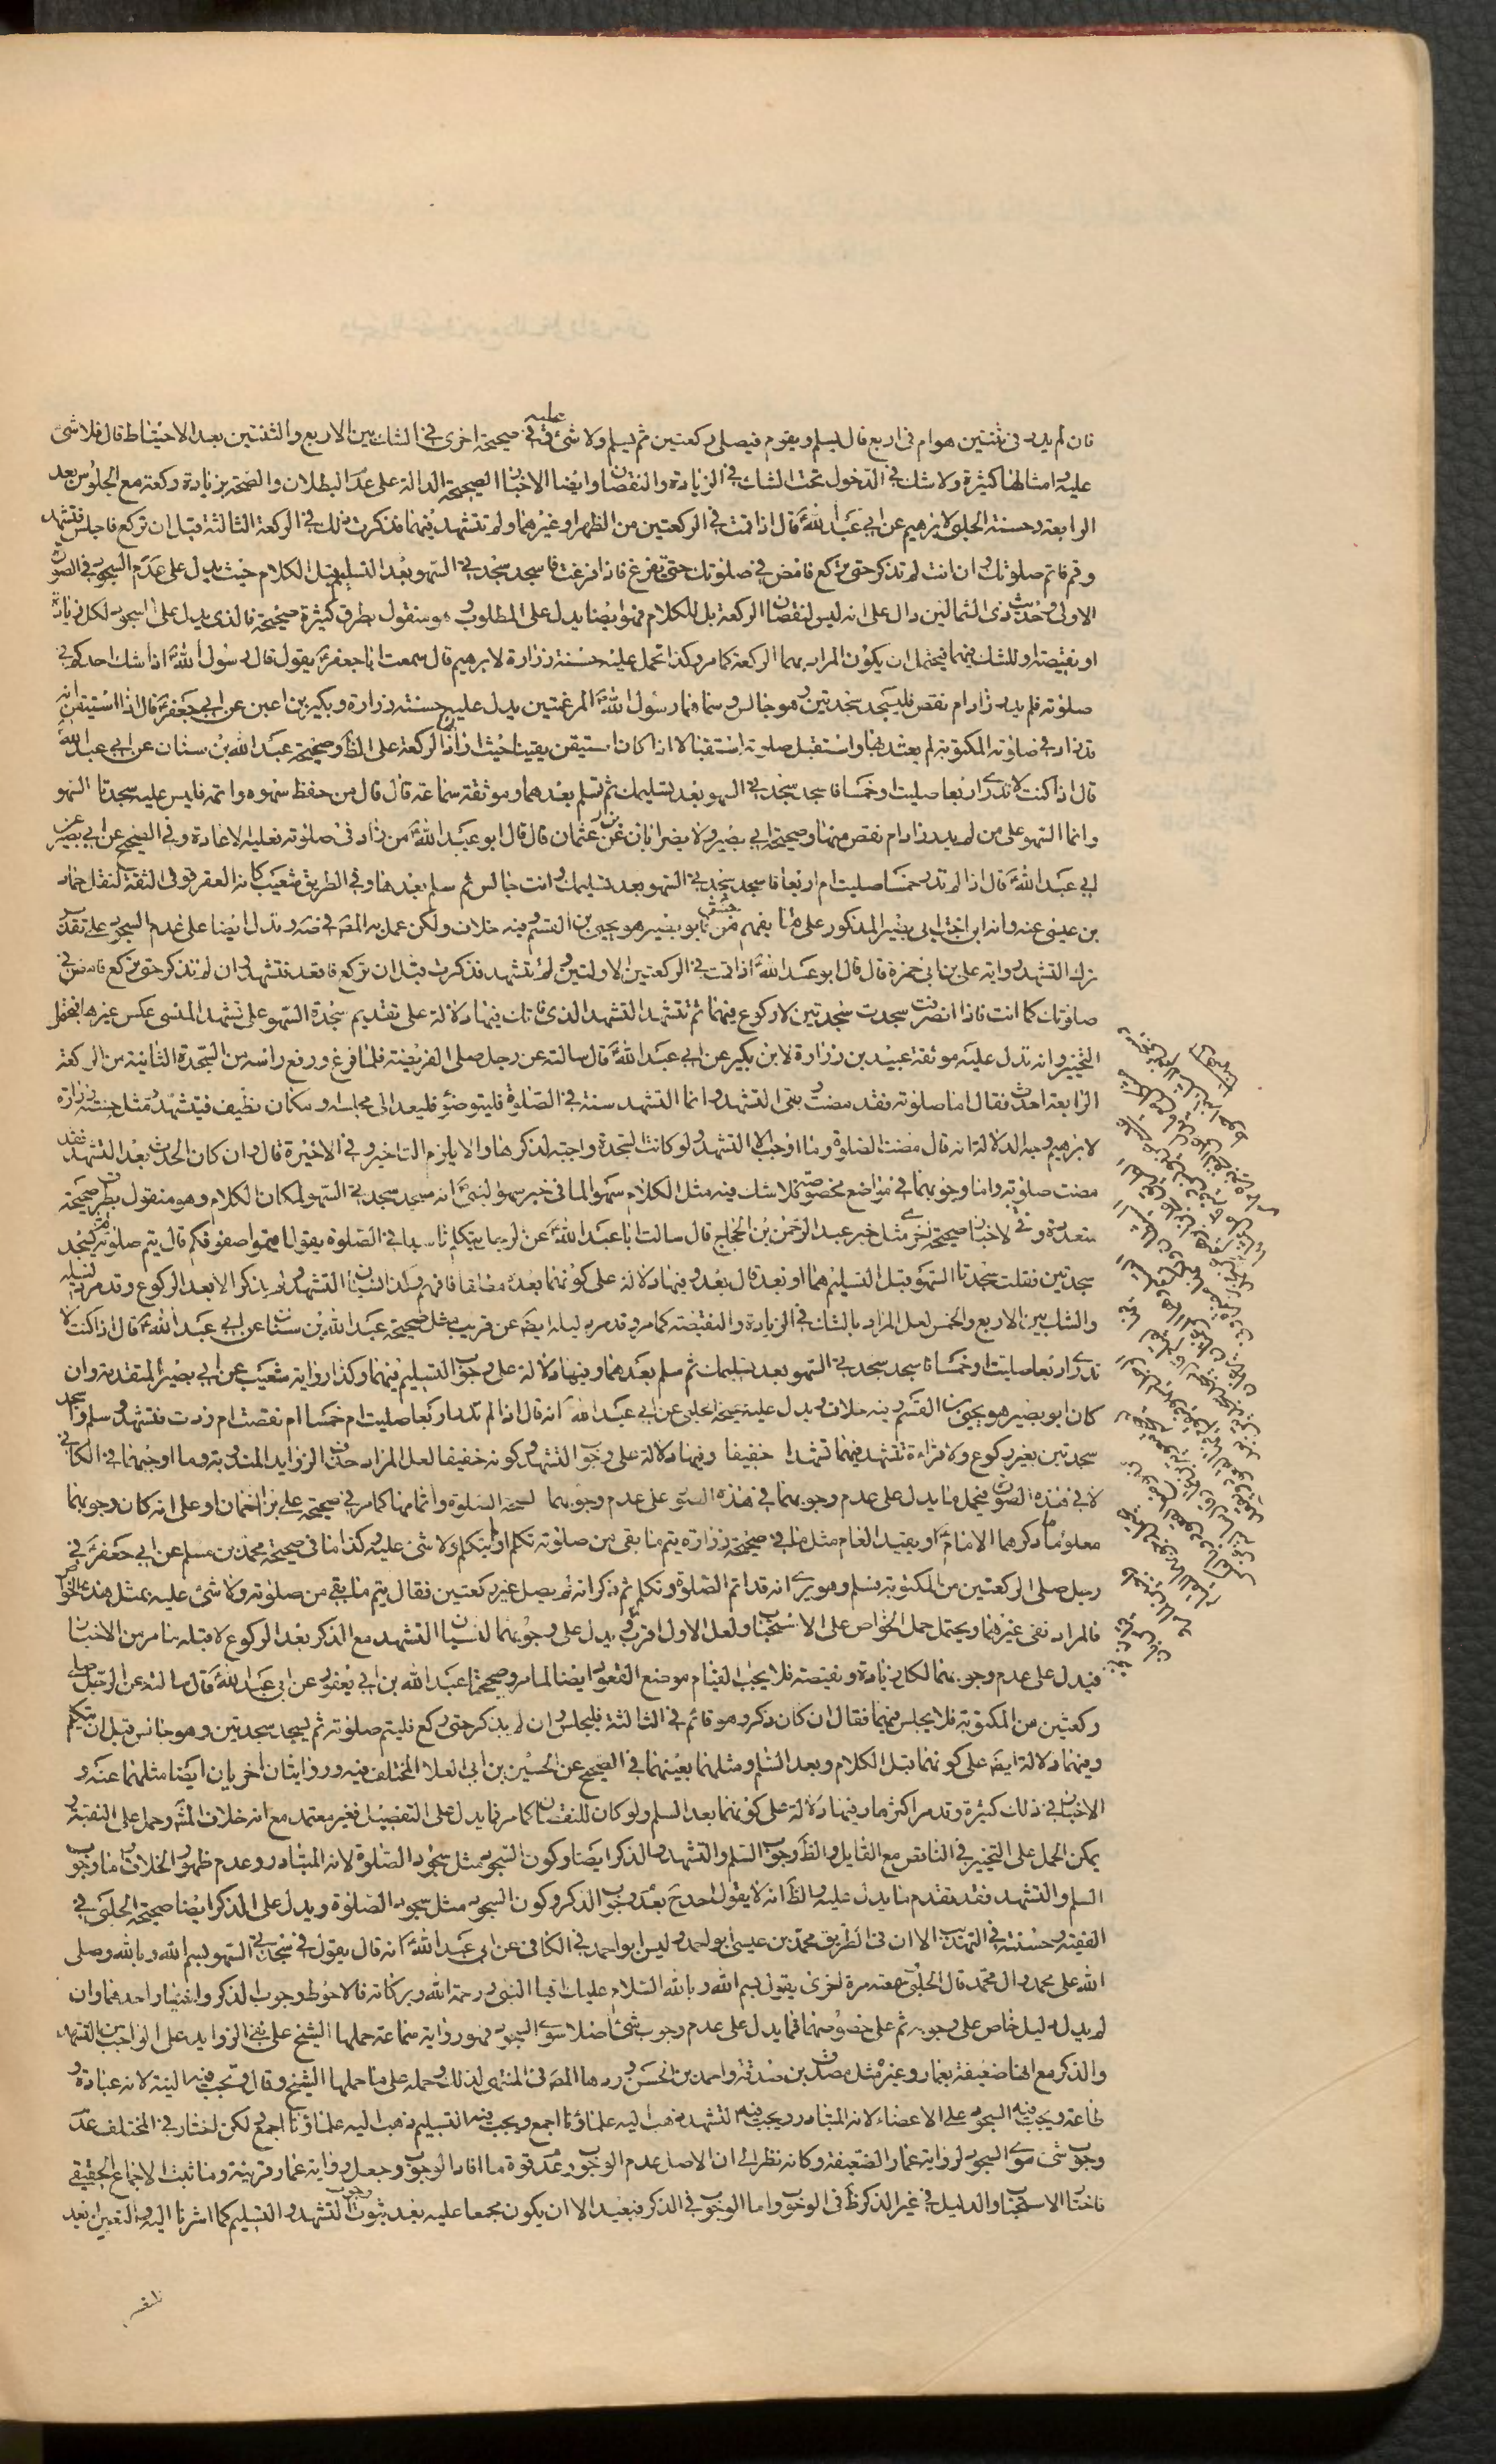 فان لم يدر في ثنتين هو ام في اربع قال يسلم ويقوم فيصلي ركعتين ثم يسلم ولا شئ عليه وفي صحيحة اخرى في الشك بين الاربع والثنتين بعد الاحتياط قال فلا شئ
عليه وامثالها كثيرة ولا شك في الدخول تحت الشك في الزيادة والنقصان وايضا الاخبار الصحيحة الدالة على عدم البطلان والصحة بزيادة ركعة مع الجلوس بعد
الرابعة وحسنة الحلبي لابرهيم عن ابي عبد الله ع قال اذا قمت في الركعتين من الظهر او غيرهما ولم تتشهد فيهما فذكرت ذلك في الركعة الثالثة قبل ان تركع فاجلس فتشهد
وقم فاتم صلوتك وان انت لم تذكر حتى تركع فامض في صلوتك حتى تفرغ فاذا فرغت فاسجد سجدتي السهو بعد التسليم قبل الكلام حيث يدل على عدم السجود في الصورة
الاولى وحديث ذى الشمالين دال على انه ليس لنقصان الركعة بل للكلام فهو ايضا يدل على المطلوب وهو منقول بطرق كثيرة صحيحة فالذى يدل على السجود لكل زيادة
او نقيصة او للشك فيهما فيحتمل ان يكون المراد بهما الركعة كما مر وكذا تحمل عليه حسنة زرارة لابرهيم قال سمعت ابا جعفر ع يقول قال رسول الله ص اذا شك احدكم في
صلوته فلم يدر زاد ام نقص فليسجد سجدتين وهو جالس وسماهما رسول الله ص المرغمتين يدل عليه حسنة زرارة وبكير بن اعين عن ابي جعفر ع قال اذا استيقن انه
قد زاد في صلوته المكتوبة لم يعتد بها واستقبل صلوته استقبالا اذا كان استيقن يقينا حيث ان زاد الركعة على الظ وصحيحة عبد الله بن سنان عن ابي عبد الله ع
قال اذا كنت لا تدرى اربعا صليت او خمسا فاسجد سجدتي السهو بعد تسليمك ثم تسلم بعدهما وموثقة سماعة قال قال من حفظ سهوه واتمه فليس عليه سجدتا السهو
وانما السهو على من لم يدر زاد ام نقص منها وصحيحة ابي بصير ولا يضر ابان بن عثمان قال قال ابو عبد الله ع من زاد في صلوته فعليه الاعادة وفي الصحيح عن ابي بصير عن
ابي عبد الله ع قال اذا لم تدر خمسا صليت ام اربعا فاسجد سجدتي السهو بعد تسليمك وانت جالس ثم سلم بعدها وفي الطريق شعيب كانه العقرقوفى الثقة لنقل حماد
بن عيسى عنه وانه ابن اخت ابي بصير المذكور على ما يفهم من فابو بصير هو يحيى بن القسم وفيه خلاف ولكن عمل به المص في ويدل ايضا على عدم السجود على تقدير
ترك التشهد رواية على بن ابي حمزة قال قال ابو عبد الله ع اذا قمت في الركعتين الاولتين ولم تتشهد فذكرت قبل ان تركع فاقعد فتشهد وان لم تذكر حتى تركع فامض في
صلوتك كما انت فاذا انصرفت سجدت سجدتين لا ركوع فيهما ثم تتشهد التشهد الذى فاتك فيها دلالة على تقديم سجدة السهو على تشهد المنسى عكس غيرها فيحمل
التخيير وانه تدل عليه موثقة عبيد بن زرارة لابن بكير عن ابي عبد الله ع قال سالته عن رجل صلى الفريضة فلما فرغ ورفع راسه من السجدة الثانية من الركعة
الرابعة احدث فقال اما صلوته فقد مضت وبقى التشهد وانما التشهد سنة في الصلوة فليتوضؤ فليعد الى مجلسه او مكان نظيف فيتشهد ومثل حسنة زرارة
لابرهيم وجه الدلالة انه قال مضت الصلوة وما اوجب الا التشهد ولو كانت السجدة واجبة لذكرها والا يلزم التاخير وفي الاخيرة قال وان كان الحدث بعد التشهد فقد
مضت صلوته واما وجوبهما في مواضع مخصوصة فلا شك فيه مثل الكلام سهوا لما في خبر سهو النبي ص انه سجد سجدتي السهو لمكان الكلام وهو منقول بطرق صحيحة
متعددة وفي الاخبار صحيحة اخرى مثل خبر عبد الرحمن بن الحجاج قال سالت ابا عبد الله ع عن الرجل يتكلم ناسيا في الصلوة يقول اقيموا صفوفكم قال يتم صلوته ثم يسجد
سجدتين فقلت سجدتا السهو قبل التسليم هما او بعد قال بعد وفيها دلالة على كونهما بعده مطلقا فافهم وكذا لنسيان التشهد ولم يذكر الا بعد الركوع وقد مر دليله
والشك بين الاربع والخمس لعل المراد بالشك في الزيادة والنقيصة كما مر وقد مر دليله ايضا عن قريب مثل صحيحة عبد الله بن سنان عن ابي عبد الله ع قال اذا كنت لا
تدرى اربعا صليت او خمسا فاسجد سجدتي السهو بعد تسليمك ثم سلم بعدهما وفيها دلالة على وجوب التسليم فيهما وكذا رواية شعيب عن ابي بصير المتقدمة وان
كان ابو بصير هو يحيى بن القسم وفيه خلاف ويدل عليه صحيحة الحلبي عن ابي عبد الله ع انه قال اذا لم تدر اربعا صليت ام خمسا ام نقصت ام زدت فتشهد وسلم واسجد
سجدتين بغير ركوع ولا قراءة تتشهد فيهما تشهدا خفيفا وفيها دلالة على وجوب التشهد وكونه خفيفا لعل المراد حذف الزوايد المندوبة وما اوجبهما في الكافى
لا في هذه الصورة فيحمل ما يدل على عدم وجوبهما في هذه السهو على عدم وجوبهما لصحة الصلوة واتمامها كما مر في صحيحة على بن النعمان او على انه كان وجوبهما
معلوما ما ذكرهما الامام ع او يقيد العام مثل ما في صحيحة زرارة يتم ما بقى من صلوته تكلم او لم يتكلم ولا شئ عليه وكذا ما في صحيحة محمد بن مسلم عن ابي جعفر ع في
رجل صلى الركعتين من المكتوبة فسلم وهو يرى انه قد اتم الصلوة وتكلم ثم ذكر انه لم يصل غير ركعتين فقال يتم ما بقى من صلوته ولا شئ عليه بمثل هذه الخواص
فالمراد نفى غيرهما ويحتمل حمل الخواص على الاستحباب ولعل الاول اقرب ويدل على وجوبهما لنسيان التشهد مع الذكر بعد الركوع لا قبله ما مر من الاخبار
فيدل على عدم وجوبهما لكل زيادة ونقيصة فلا يجب لقيام موضع القعود ايضا لما مر وصحيحة عبد الله بن ابي يعفور عن ابي عبد الله ع قال سالته عن الرجل صلى
ركعتين من المكتوبة فلا يجلس فيهما فقال ان كان ذكر وهو قائم في الثالثة فليجلس وان لم يذكر حتى ركع فليتم صلوته ثم يسجد سجدتين وهو جالس قبل ان يتكلم
وفيهما دلالة ايضا على كونهما قبل الكلام وبعد السلم ومثلهما بعينهما في الصحيح عن الحسين بن ابي العلا المختلف فيه وروايتان اخريان ايضا مثلهما عنه و
الاخبار في ذلك كثيرة وقد مر اكثرها وفيها دلالة على كونهما بعد السلم ولو كان للنقصان كما مر فما يدل على التفصيل فغير معتمد مع انه خلاف المشهور وحمل على التقية و
يمكن الحمل على التخيير في الناقص مع القايل والظ وجوب السلم والتشهد والذكر ايضا وكون السجود مثل سجود الصلوة لانه المتبادر وعدم ظهور الخلاف اما وجوب
السلم والتشهد فقد تقدم ما يدل عليه والظ انه لا يقول احد بعدم وجوب الذكر وكون السجود مثل سجود الصلوة ويدل على الذكر ايضا صحيحة الحلبي في
الفقيه وحسنته في التهذيب الا ان في الطريق محمد بن عيسى ابو احمد وليس ابو احمد في الكافى عن ابي عبد الله ع انه قال يقول في سجدتي السهو بسم الله وبالله وصلى
الله على محمد وال محمد قال الحلبي سمعته مرة اخرى يقول بسم الله وبالله السلام عليك ايها النبي ورحمة الله وبركاته فالاحوط وجوب الذكر واختيار احدهما وان
لم يدل دليل خاص على وجوبه ثم على خصوصهما فما يدل على عدم وجوب شئ اصلا سوى السجود فهو رواية عمار حملها الشيخ على نفى الزوايد على الواجب من التشهد
والذكر مع انها ضعيفة بعمار وغيره مثل مصدق بن صدقة واحمد بن الحسن وردها المص في المنتهى لذلك وحمله على ما حملها الشيخ وقال وتجب فيه النية لانه عبادة و
طاعة ويجب فيه السجود على الاعضاء لانه المتبادر ويجب فيه التشهد ذهب اليه علماؤنا اجمع ويجب فيه التسليم ذهب اليه علماؤنا اجمع لكن اختار في المختلف عدم
وجوب شئ سوى السجود لرواية عمار الضعيفة وكانه نظر الى ان الاصل عدم الوجوب وعدم قوة ما افاد الوجوب وجعل رواية عمار قرينة وما ثبت الاجماع الحقيقي
فاختار الاستحباب والدليل في غير الذكر ظ في الوجوب واما الوجوب في الذكر فبعيد الا ان يكون مجمعا عليه بعد ثبوت وجوب التشهد والتسليم كما اشرنا اليه والتعين بعيد